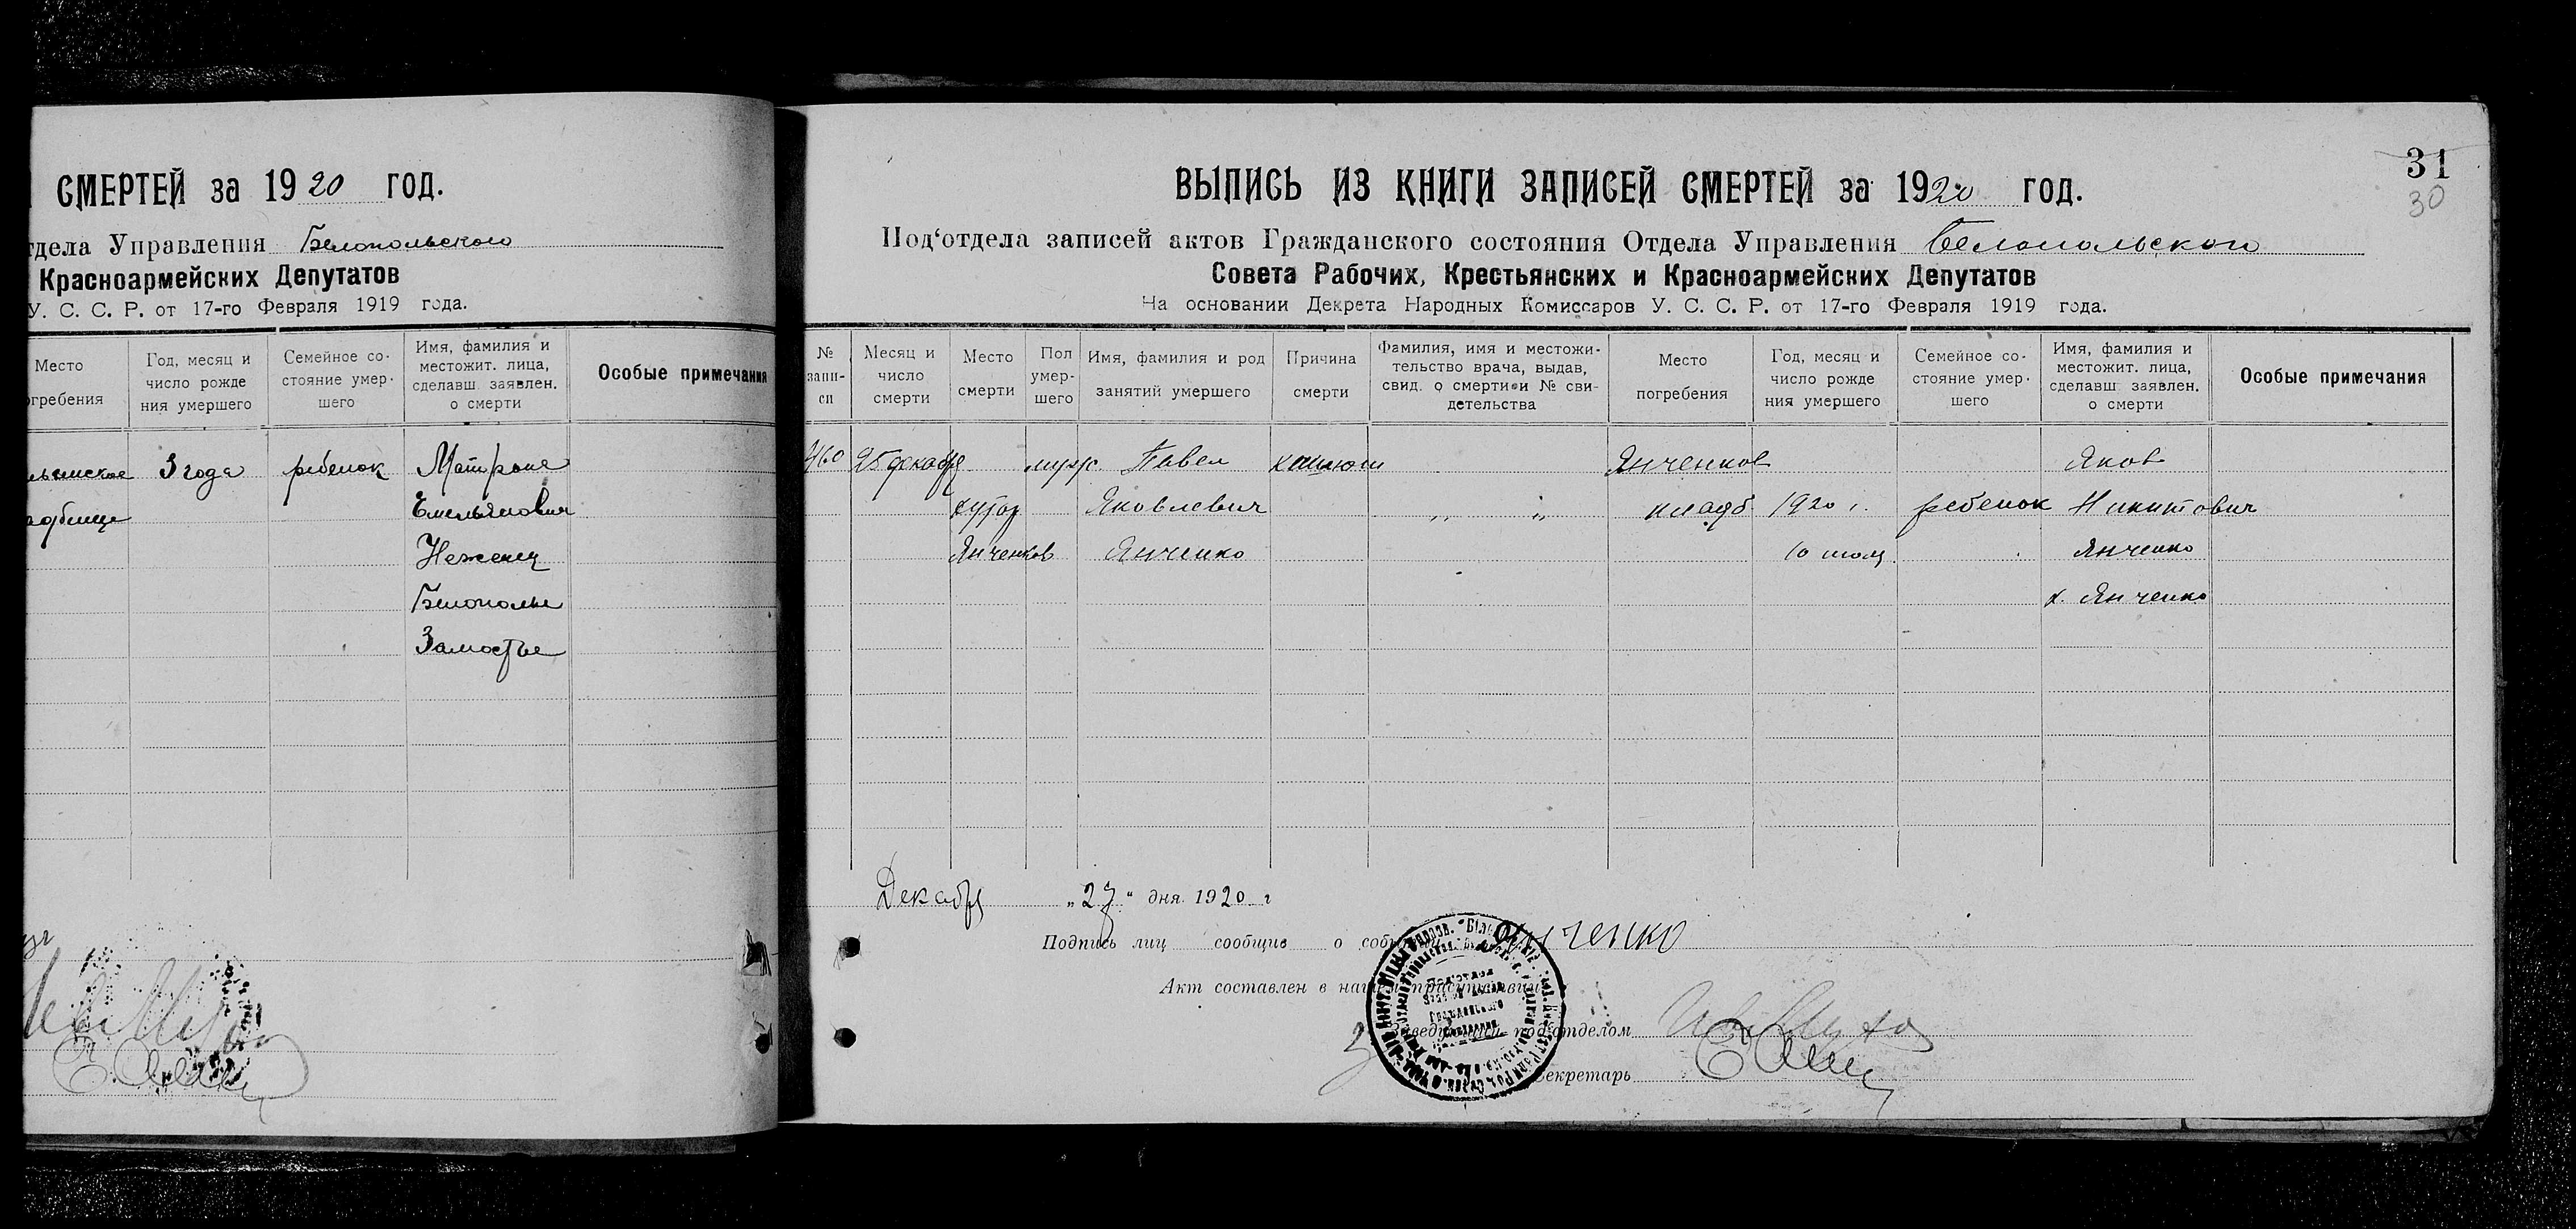 СМЕРТЕЙ за 1920 ГОД.
тдела Управления Белопольского
Красноармейских Депутатов
У. С. С. Р. от 17-го Февраля 1919 года.
Место
гребения
Год, месяц и
число рожде
ния умершего
Семейное со-
стояние умер-
шего
Имя, фамилия и
местожит. лица,
сделавш. заявлен.
о смерти
Особые примечания
3 года ребенок Матрона
Емельяновна
Неженец
Белополье
Замостье
31
30
ВЫПИСЬ ИЗ КНИГИ ЗАПИСЕЙ СМЕРТЕЙ за 1920 ГОД.
Под‘отдела записей актов Гражданского состояния Отдела Управления Белопольского
Совета Рабочих, Крестьянских и Красноармейских Депутатов
На основании Декрета Народных Комиссаров У. С. С. Р. от 17-го Февраля 1919 года.
№
запи-
си
Месяц и
число
смерти
Место
смерти
Пол
умер-
шего
Имя, фамилия и род
занятий умершего
Причина
смерти
Фамилия, имя и местожи-
тельство врача, выдав,
свид. о смерти и № сви-
детельства
Место
погребения
Год, месяц и
число рожде
ния умершего
Семейное со-
стояние умер-
шего
Имя, фамилия и
местожит. лица,
сделавш. заявлен.
о смерти
Особые примечания
460 25 декабря муж. Павел Янченков Яков
хутор Яковлевич „ „ кладб 1920 г. ребенок Никитович
Янченков Янченко 10 Янченко
х. Янченко
Декабря „27“ дня 1920 г
Подпись лиц сообщив о собы Янченко
Акт составлен в нашем присутствии
Заведующий под‘отделом
Секретарь